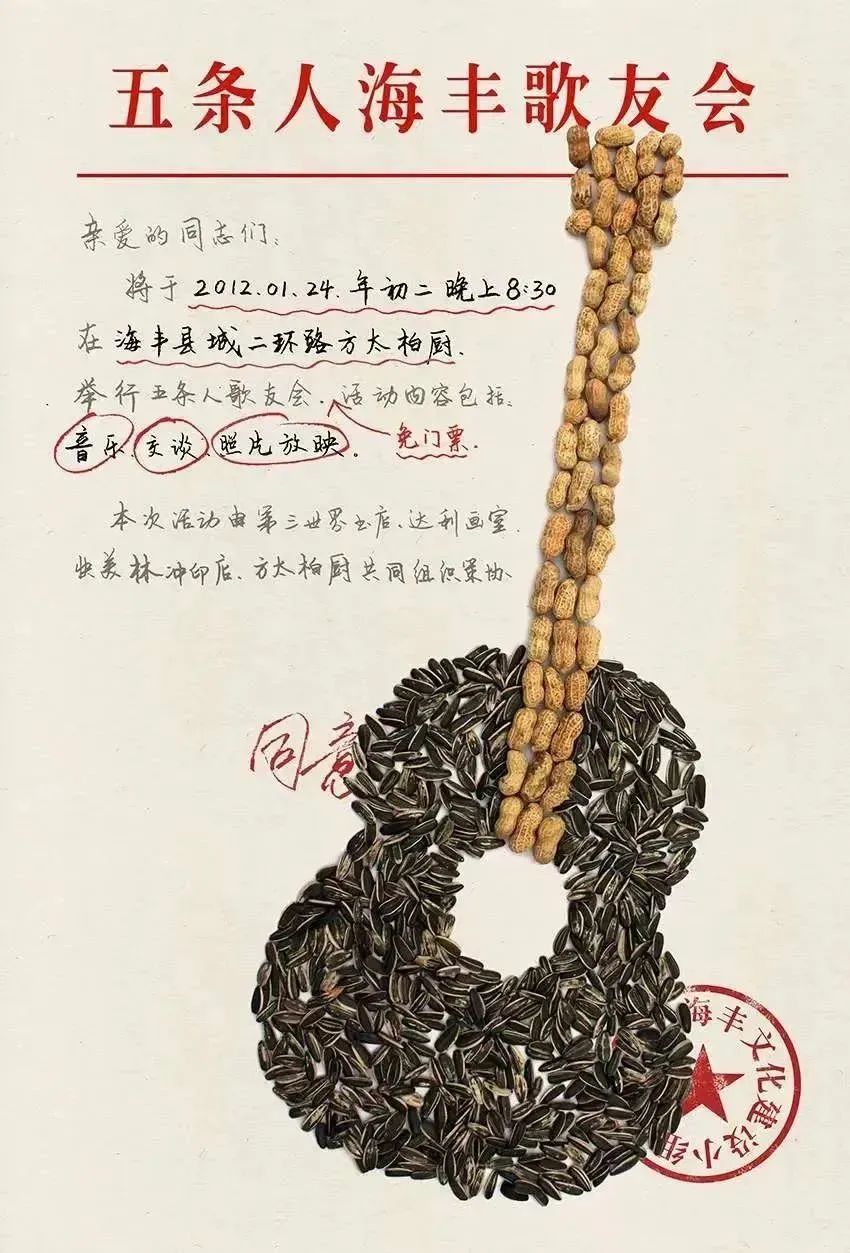 五条人海丰歌友会
亲爱的同志们:
将于 2012.01.24.年初二晚上8:30
在海丰县城二环路方太柏厨.
举行五条人歌友会.活动内容包括:
音乐、交谈、照片放映.
免门票.
本次活动由第三世界书店、达利画室.
快美林冲印店、方太柏厨共同组织策协.
同意
海丰文化建设小组